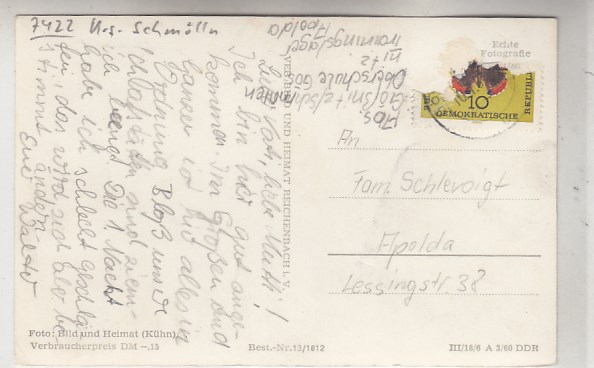 7422 Krs. Schmölln
Lieber Vati, liebe Mutti!
Ich bin hier gut ange-
kommen. Im Großen und
Ganzen ist hier alles in
Ordnung. Bloß unsere
Schlafstätten sind ziem-
lich eng. Die 1. Nacht
habe ich schlecht geschla-
fen, das wird sich aber be-
stimmt ändern.
Euer Walter
Abs.
Gößnitz/Schmölln
Oberschule Gö.
III
Trainingslager
Apolda
VERLAG BILD UND HEIMAT REICHENBACH I. V.
Echte
Fotografie
10
DEMOKRATISCHE
REPUBLIK
An
Fam. Schlevoigt
Apolda
Lessingstr. 38
Foto: Bild und Heimat (Kühn)
Verbraucherpreis DM –,15
Best.-Nr. 13/1612
III/18/6 A 3/60 DDR